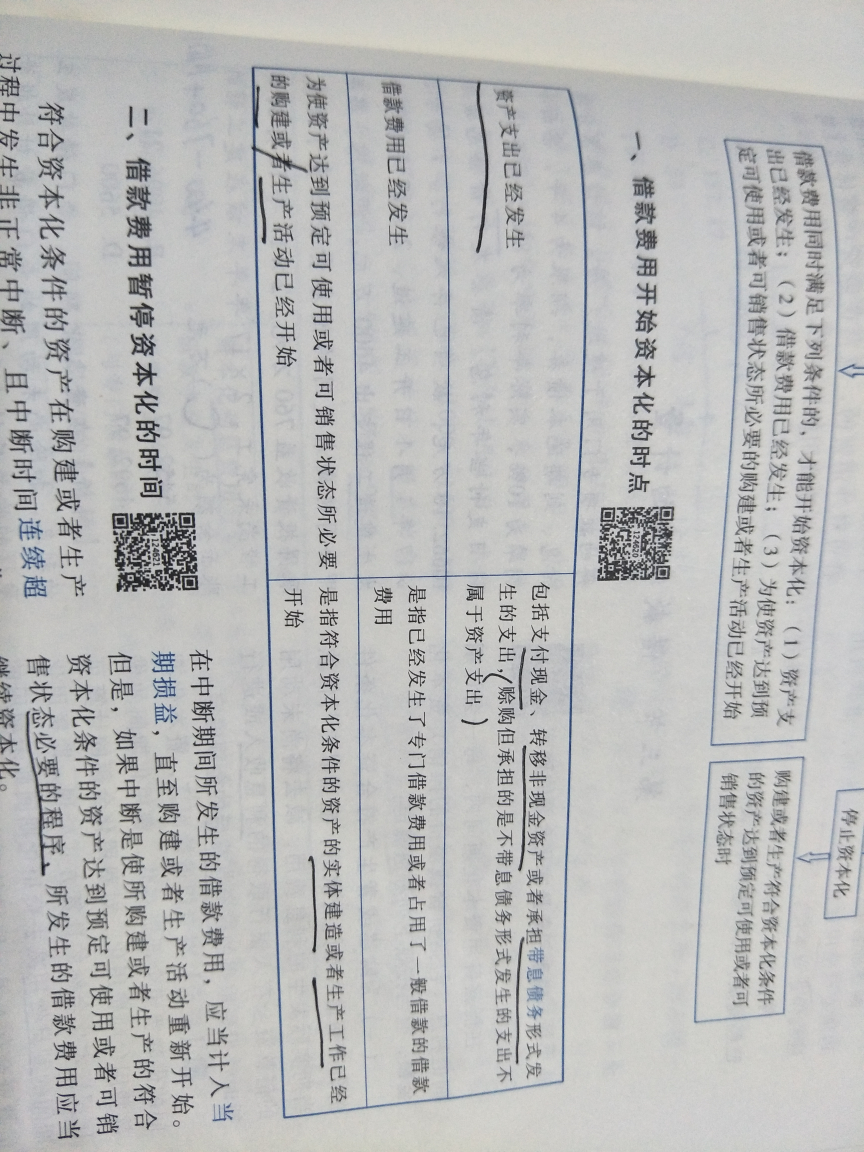 停止资本化
借款费用同时满足下列条件的，才能开始资本化：（1）资产支
出已经发生；（2）借款费用已经发生；（3）为使资产达到预
定可使用或者可销售状态所必要的购建或者生产活动已经开始
购建或者生产符合资本化条件
的资产达到预定可使用或者可
销售状态时
一、借款费用开始资本化的时点
资产支出已经发生
包括支付现金、转移非现金资产或者承担带息债务形式发
生的支出，（赊购但承担的是不带息债务形式发生的支出不
属于资产支出）
借款费用已经发生
是指已经发生了专门借款费用或者占用了一般借款的借款
费用
为使资产达到预定可使用或者可销售状态所必要
的购建或者生产活动已经开始
是指符合资本化条件的资产的实体建造或者生产工作已经
开始
二、借款费用暂停资本化的时间
符合资本化条件的资产在购建或者生产
过程中发生非正常中断、且中断时间连续超
在中断期间所发生的借款费用，应当计入当
期损益，直至购建或者生产活动重新开始。
但是，如果中断是使所购建或者生产的符合
资本化条件的资产达到预定可使用或者可销
售状态必要的程序，所发生的借款费用应当
继续资本化。